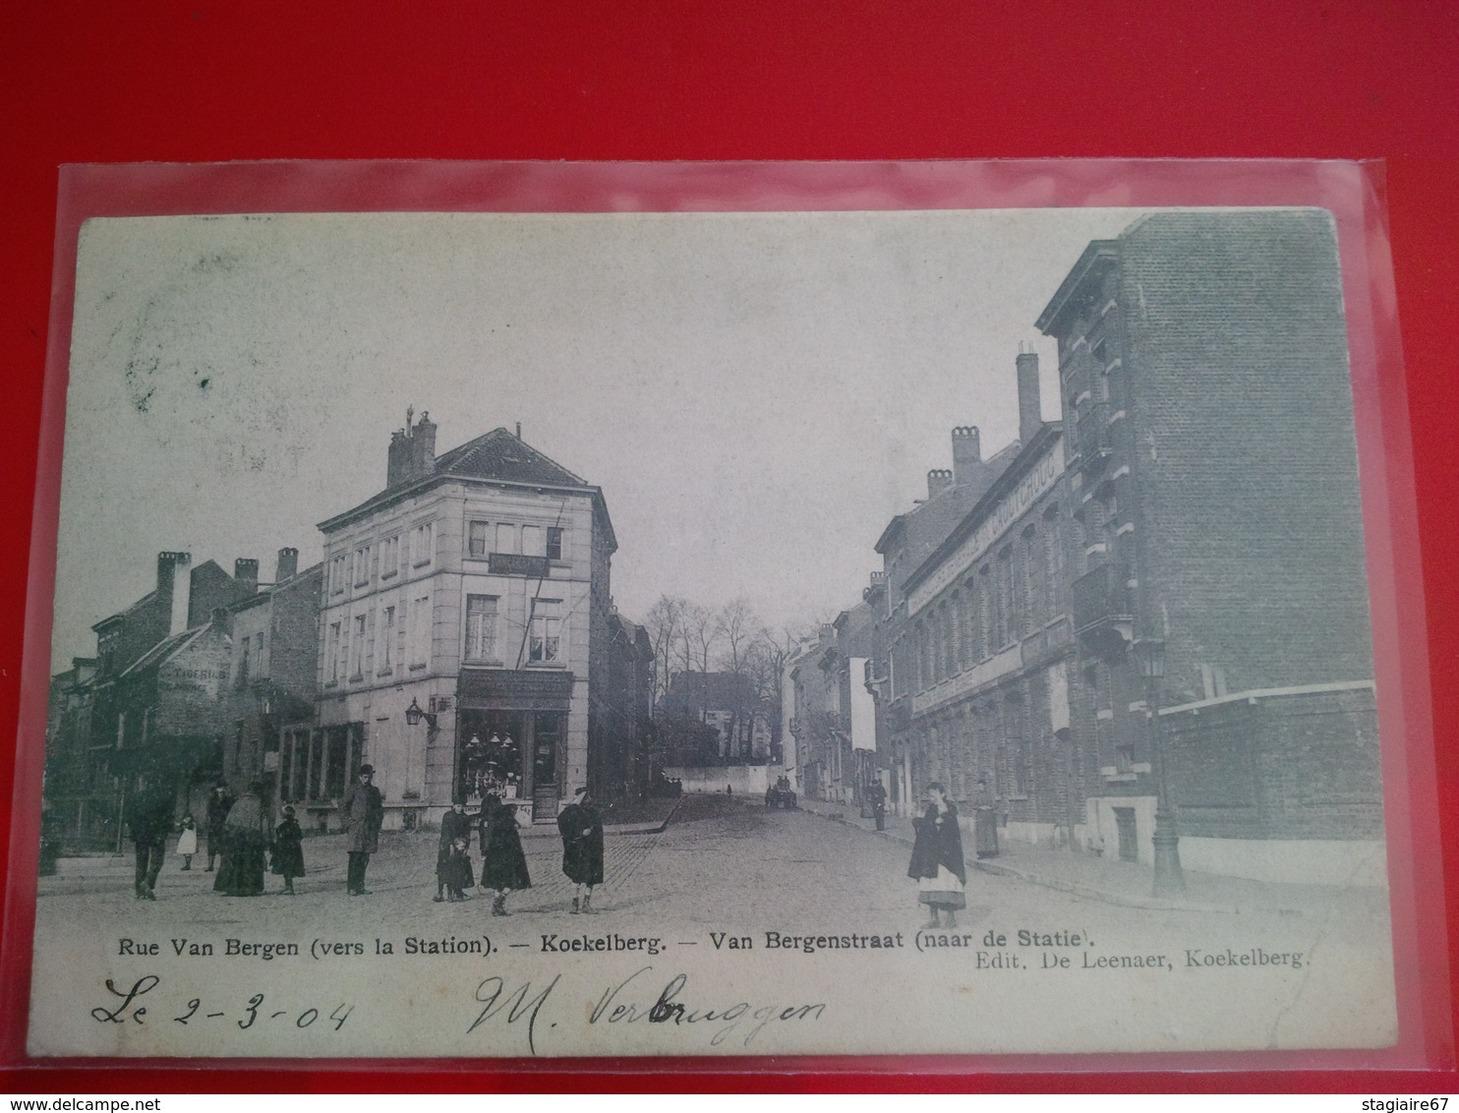 CAOUTCHOUC
Rue Van Bergen (vers la Station). — Koekelberg. — Van Bergenstraat (naar de Statie).
Edit. De Leenaer, Koekelberg.
Le 2-3-04 M. Verbruggen
www.delcampe.net
stagiaire67